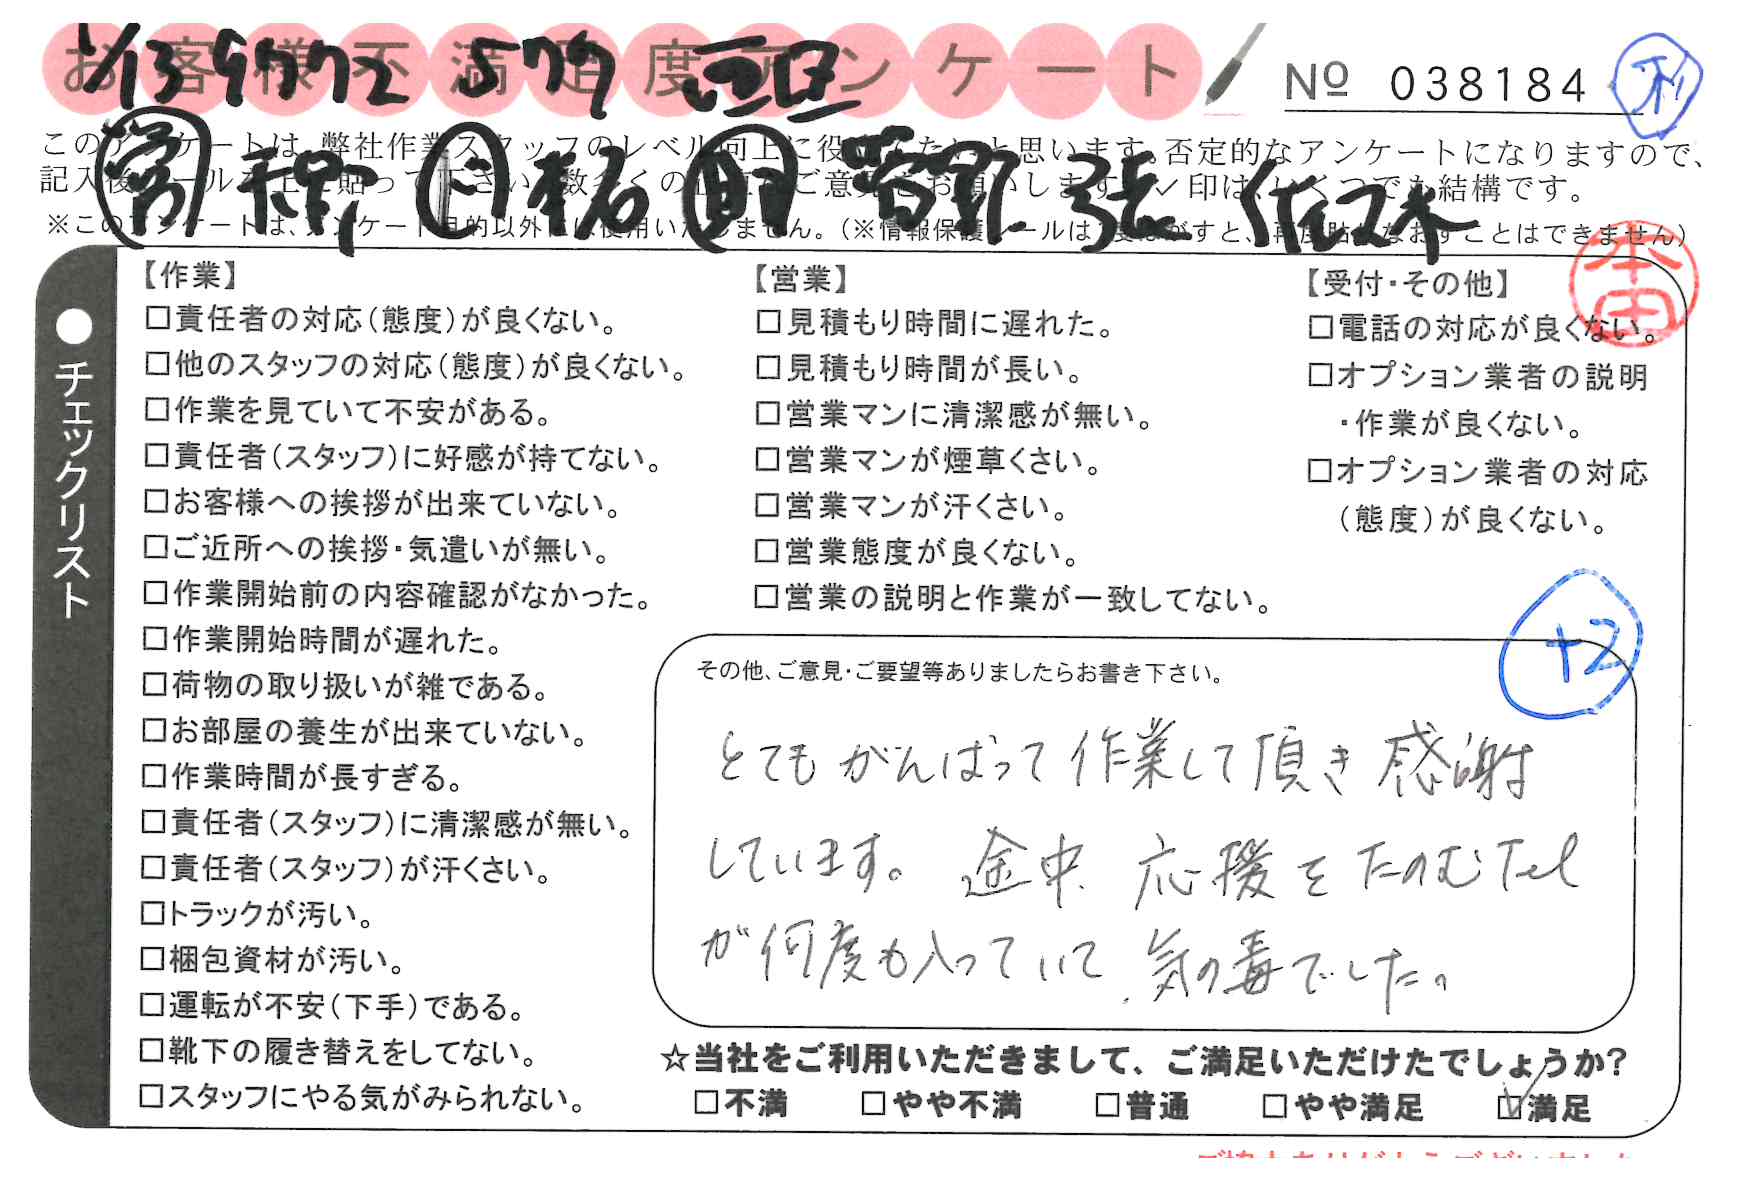 お客様不満足度アンケート
№ 038184
このアンケートは、弊社作業スタッフのレベル向上に役立てたいと思います。否定的なアンケートになりますので、
※このアンケートは、アンケート目的以外には使用いたしません。(※情報保護シールは1度はがすと、再度貼りなおすことはできません)
本田
●チェックリスト
【作業】
□責任者の対応(態度)が良くない。
□他のスタッフの対応(態度)が良くない。
□作業を見ていて不安がある。
□責任者(スタッフ)に好感が持てない。
□お客様への挨拶が出来ていない。
□ご近所への挨拶・気遣いが無い。
□作業開始前の内容確認がなかった。
□作業開始時間が遅れた。
□荷物の取り扱いが雑である。
□お部屋の養生が出来ていない。
□作業時間が長すぎる。
□責任者(スタッフ)に清潔感が無い。
□責任者(スタッフ)が汗くさい。
□トラックが汚い。
□梱包資材が汚い。
□運転が不安(下手)である。
□靴下の履き替えをしてない。
□スタッフにやる気がみられない。
【営業】
□見積もり時間に遅れた。
□見積もり時間が長い。
□営業マンに清潔感が無い。
□営業マンが煙草くさい。
□営業マンが汗くさい。
□営業態度が良くない。
□営業の説明と作業が一致してない。
【受付・その他】
□電話の対応が良くない。
□オプション業者の説明
・作業が良くない。
□オプション業者の対応
(態度)が良くない。
+2
その他、ご意見・ご要望等ありましたらお書き下さい。
とてもがんばって作業して頂き感謝
しています。途中応援をたのむTel
が何度も入っていて、気の毒でした。
☆当社をご利用いただきまして、ご満足いただけたでしょうか?
□不満 □やや不満 □普通 □やや満足 ☑満足